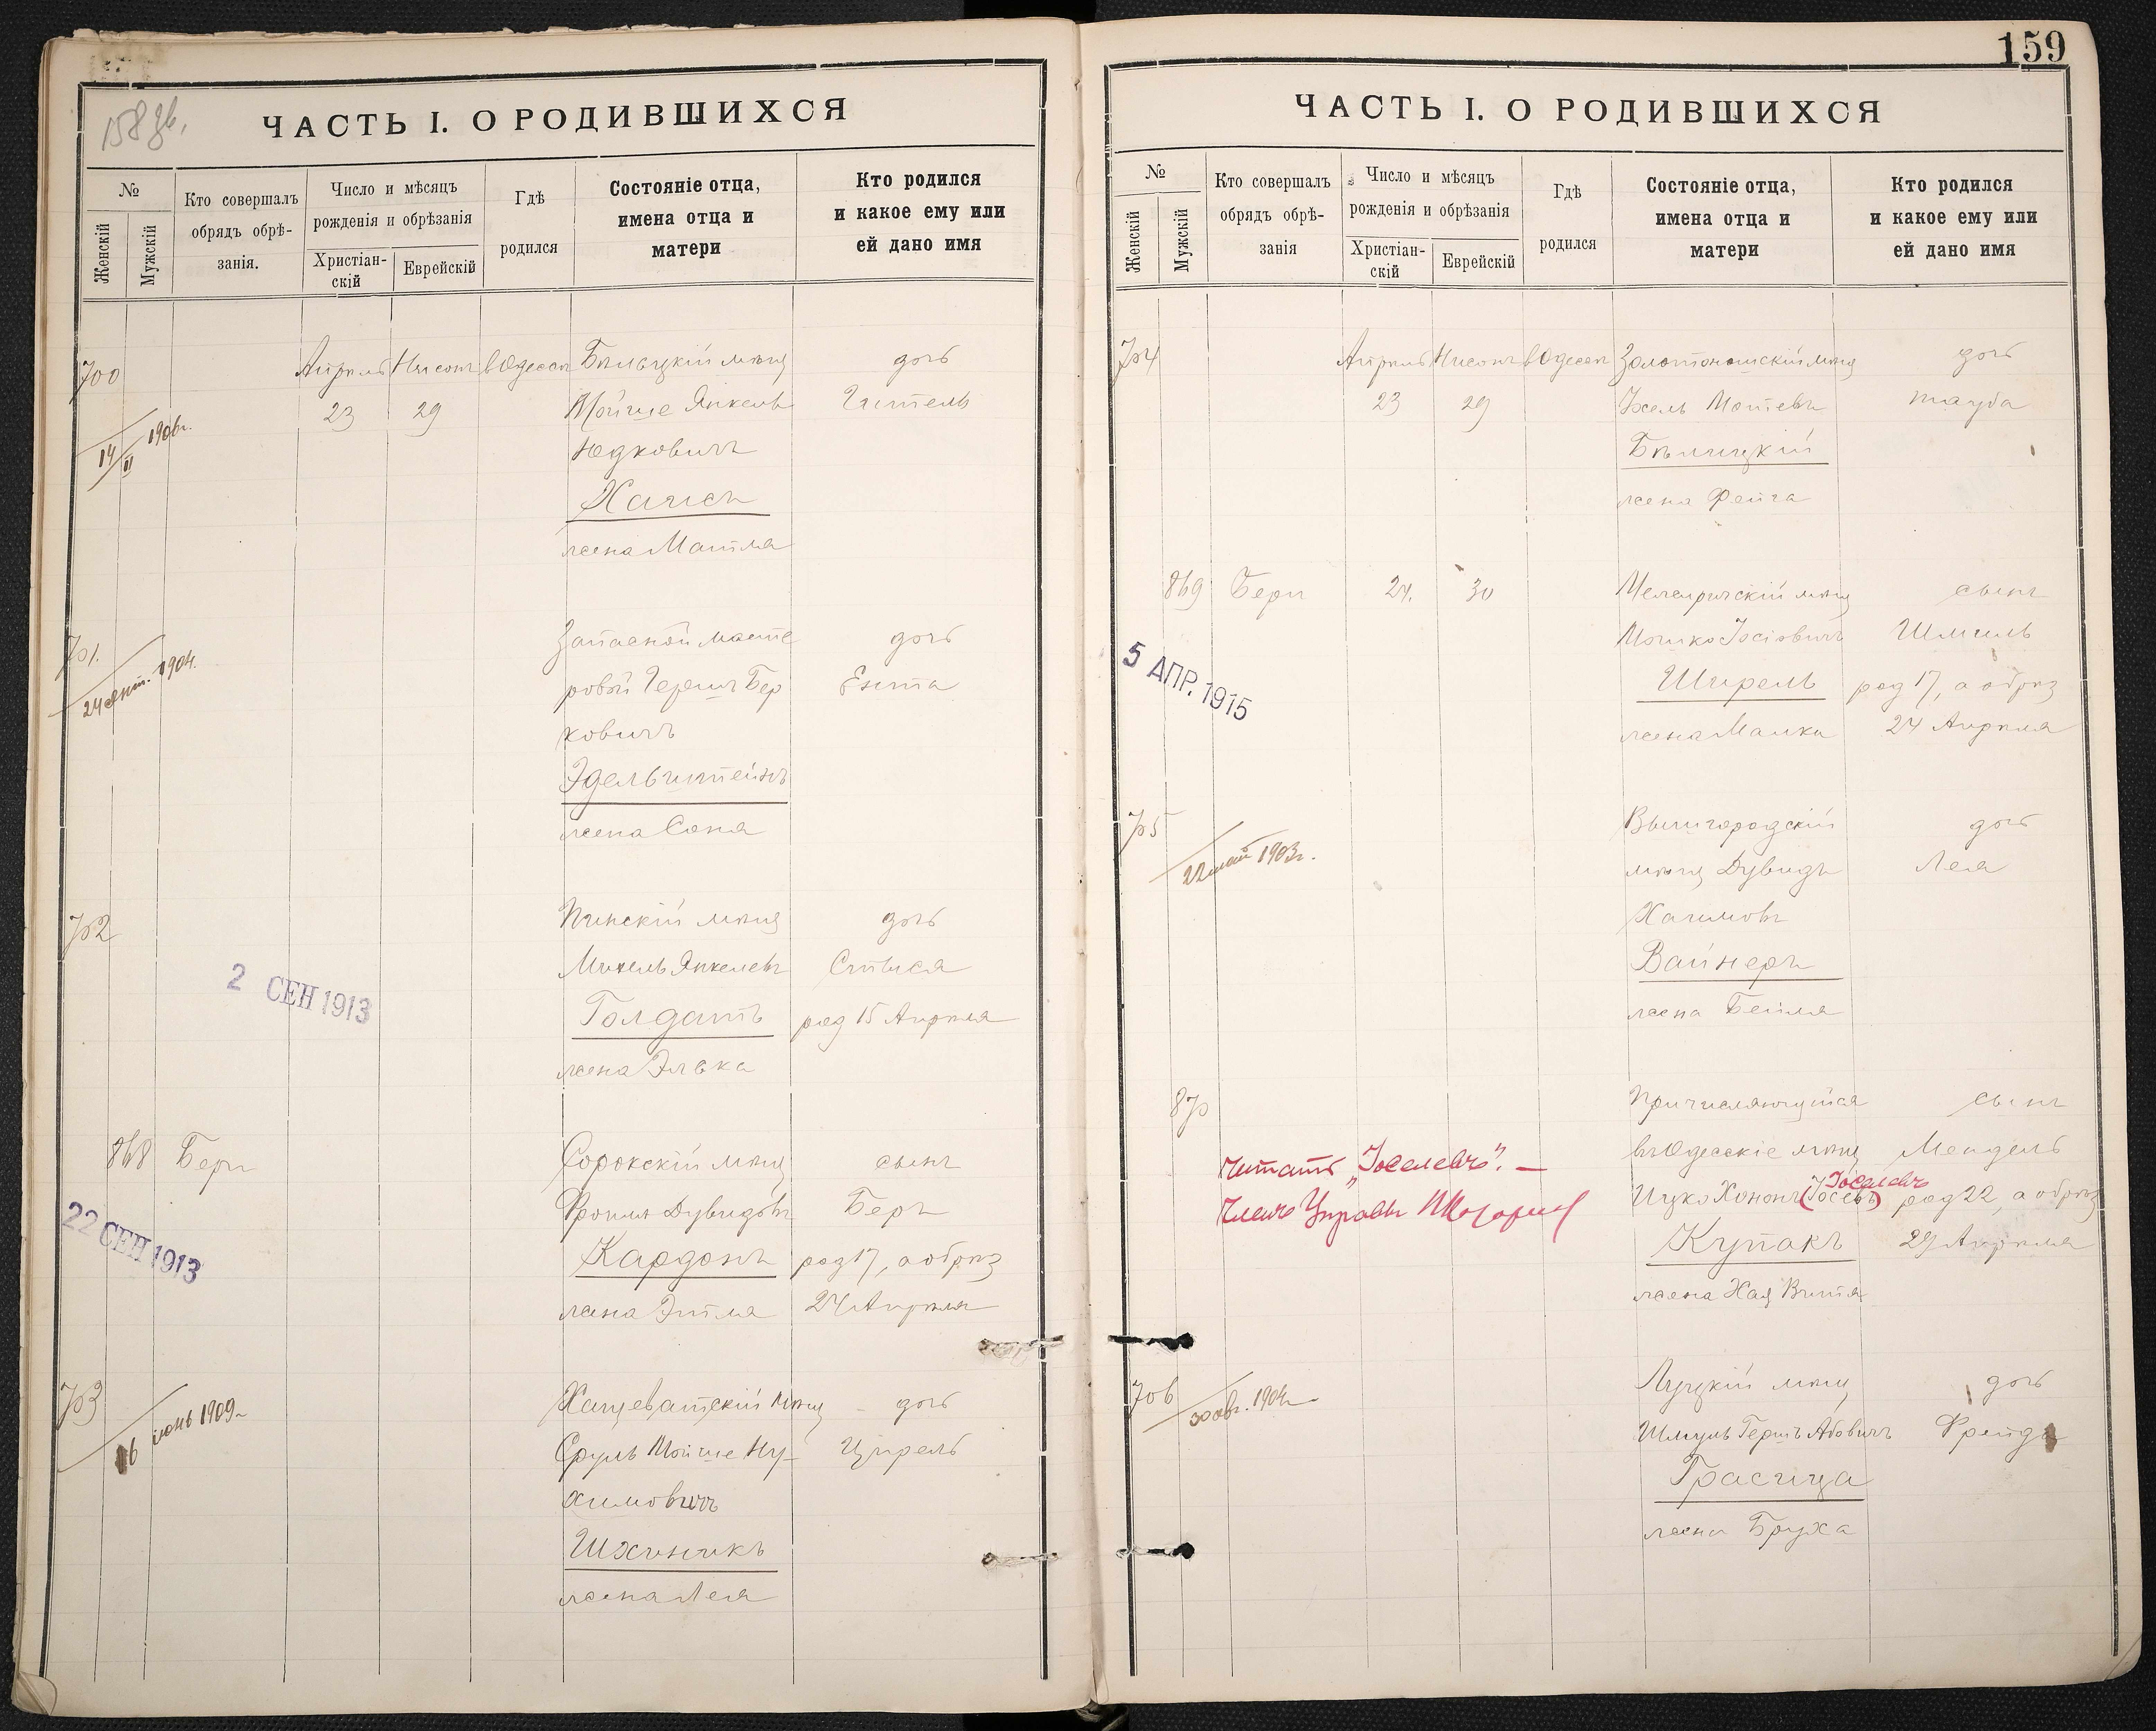 158 зв.
ЧАСТЬ I. О РОДИВШИХСЯ
№
Женскій
Мужскій
Кто совершалъ
обрядъ обрѣ-
занія.
Число и мѣсяцъ
рожденія и обрѣзанія
Христіан-
скій
Еврейскій
Гдѣ
родился
Состояніе отца,
имена отца и
матери
Кто родился
и какое ему или
ей дано имя
700 Апрѣль Нисонъ въ Одессѣ Бѣльцкій мѣщ дочь
23 29 Мойше Янкель Гитель
14/II 1906г.
Юдковичъ
Хаисъ
жена Матля
701. Запасной масте дочь
24 сент. 1904.
ровой Гершъ Бер Ента
ковичъ
Эдельштейнъ
жена Соня
702 Пинскій мѣщ дочь
Михель Янкелевъ
2 СЕН 1913
Голдатъ род 15 Апрѣля
жена Элька
868 Беръ Сорокскій мѣщ сынъ
Фроимъ Дувидовъ Беръ
22 СЕН 1913
Кардонъ род 17, а обрѣз
жена Этля 24 Апрѣля
703 Хащеватскій мѣщ дочь
16 іюнь 1909г
Сруль Мойше Ну- Цирель
химовичъ
Шхиникъ
жена Лея
159
ЧАСТЬ I. О РОДИВШИХСЯ
№
Женскій
Мужскій
Кто совершалъ
обрядъ обрѣ-
занія
Число и мѣсяцъ
рожденія и обрѣзанія
Христіан-
скій
Еврейскій
Гдѣ
родился
Состояніе отца,
имена отца и
матери
Кто родился
и какое ему или
ей дано имя
704 Апрѣль Нисонъ въ Одессѣ Золотоношскій мѣщ дочь
23 29 Іосель Мотевъ Тауба
Бѣлицкій
жена Фейга
869 Беръ 24. 30 мѣщ сынъ
Мошко Іосіовичъ Шмиль
5 АПР. 1915
Ширель род 17, а обрѣз
жена Малка 24 Апрѣля
705 Вышгородскій дочь
22 май 1903г.
мѣщ Дувидъ Лея
Хаимовъ
Вайнеръ
жена Бейля
870 Причисляющійся сынъ
въ Одесскіе мѣщ Мендель
Читать „Іоселевъ". —
Іоселевъ
Ицко Хононъ (Іосевъ) род 22, а обрѣз
Членъ Управы
Купакъ 29 Апрѣля
жена Хая Витя
706 Луцкій мѣщ дочь
30 авг. 1904г
Шмуль Гершъ Абовичъ Фрейда
Грасица
жена Бруха